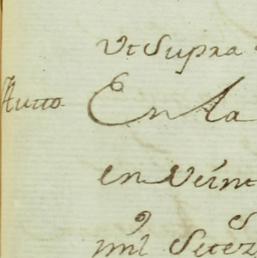 Vt Supra
Autto
En la
en Veint
mil Setez